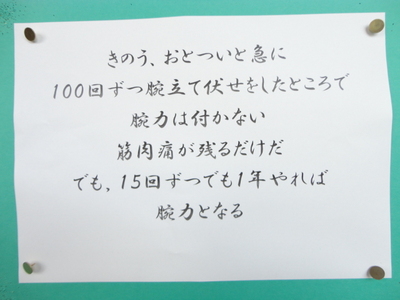 きのう、おとついと急に
100回ずつ腕立て伏せをしたところで
腕力は付かない
筋肉痛が残るだけだ
でも、15回ずつでも1年やれば
腕力となる